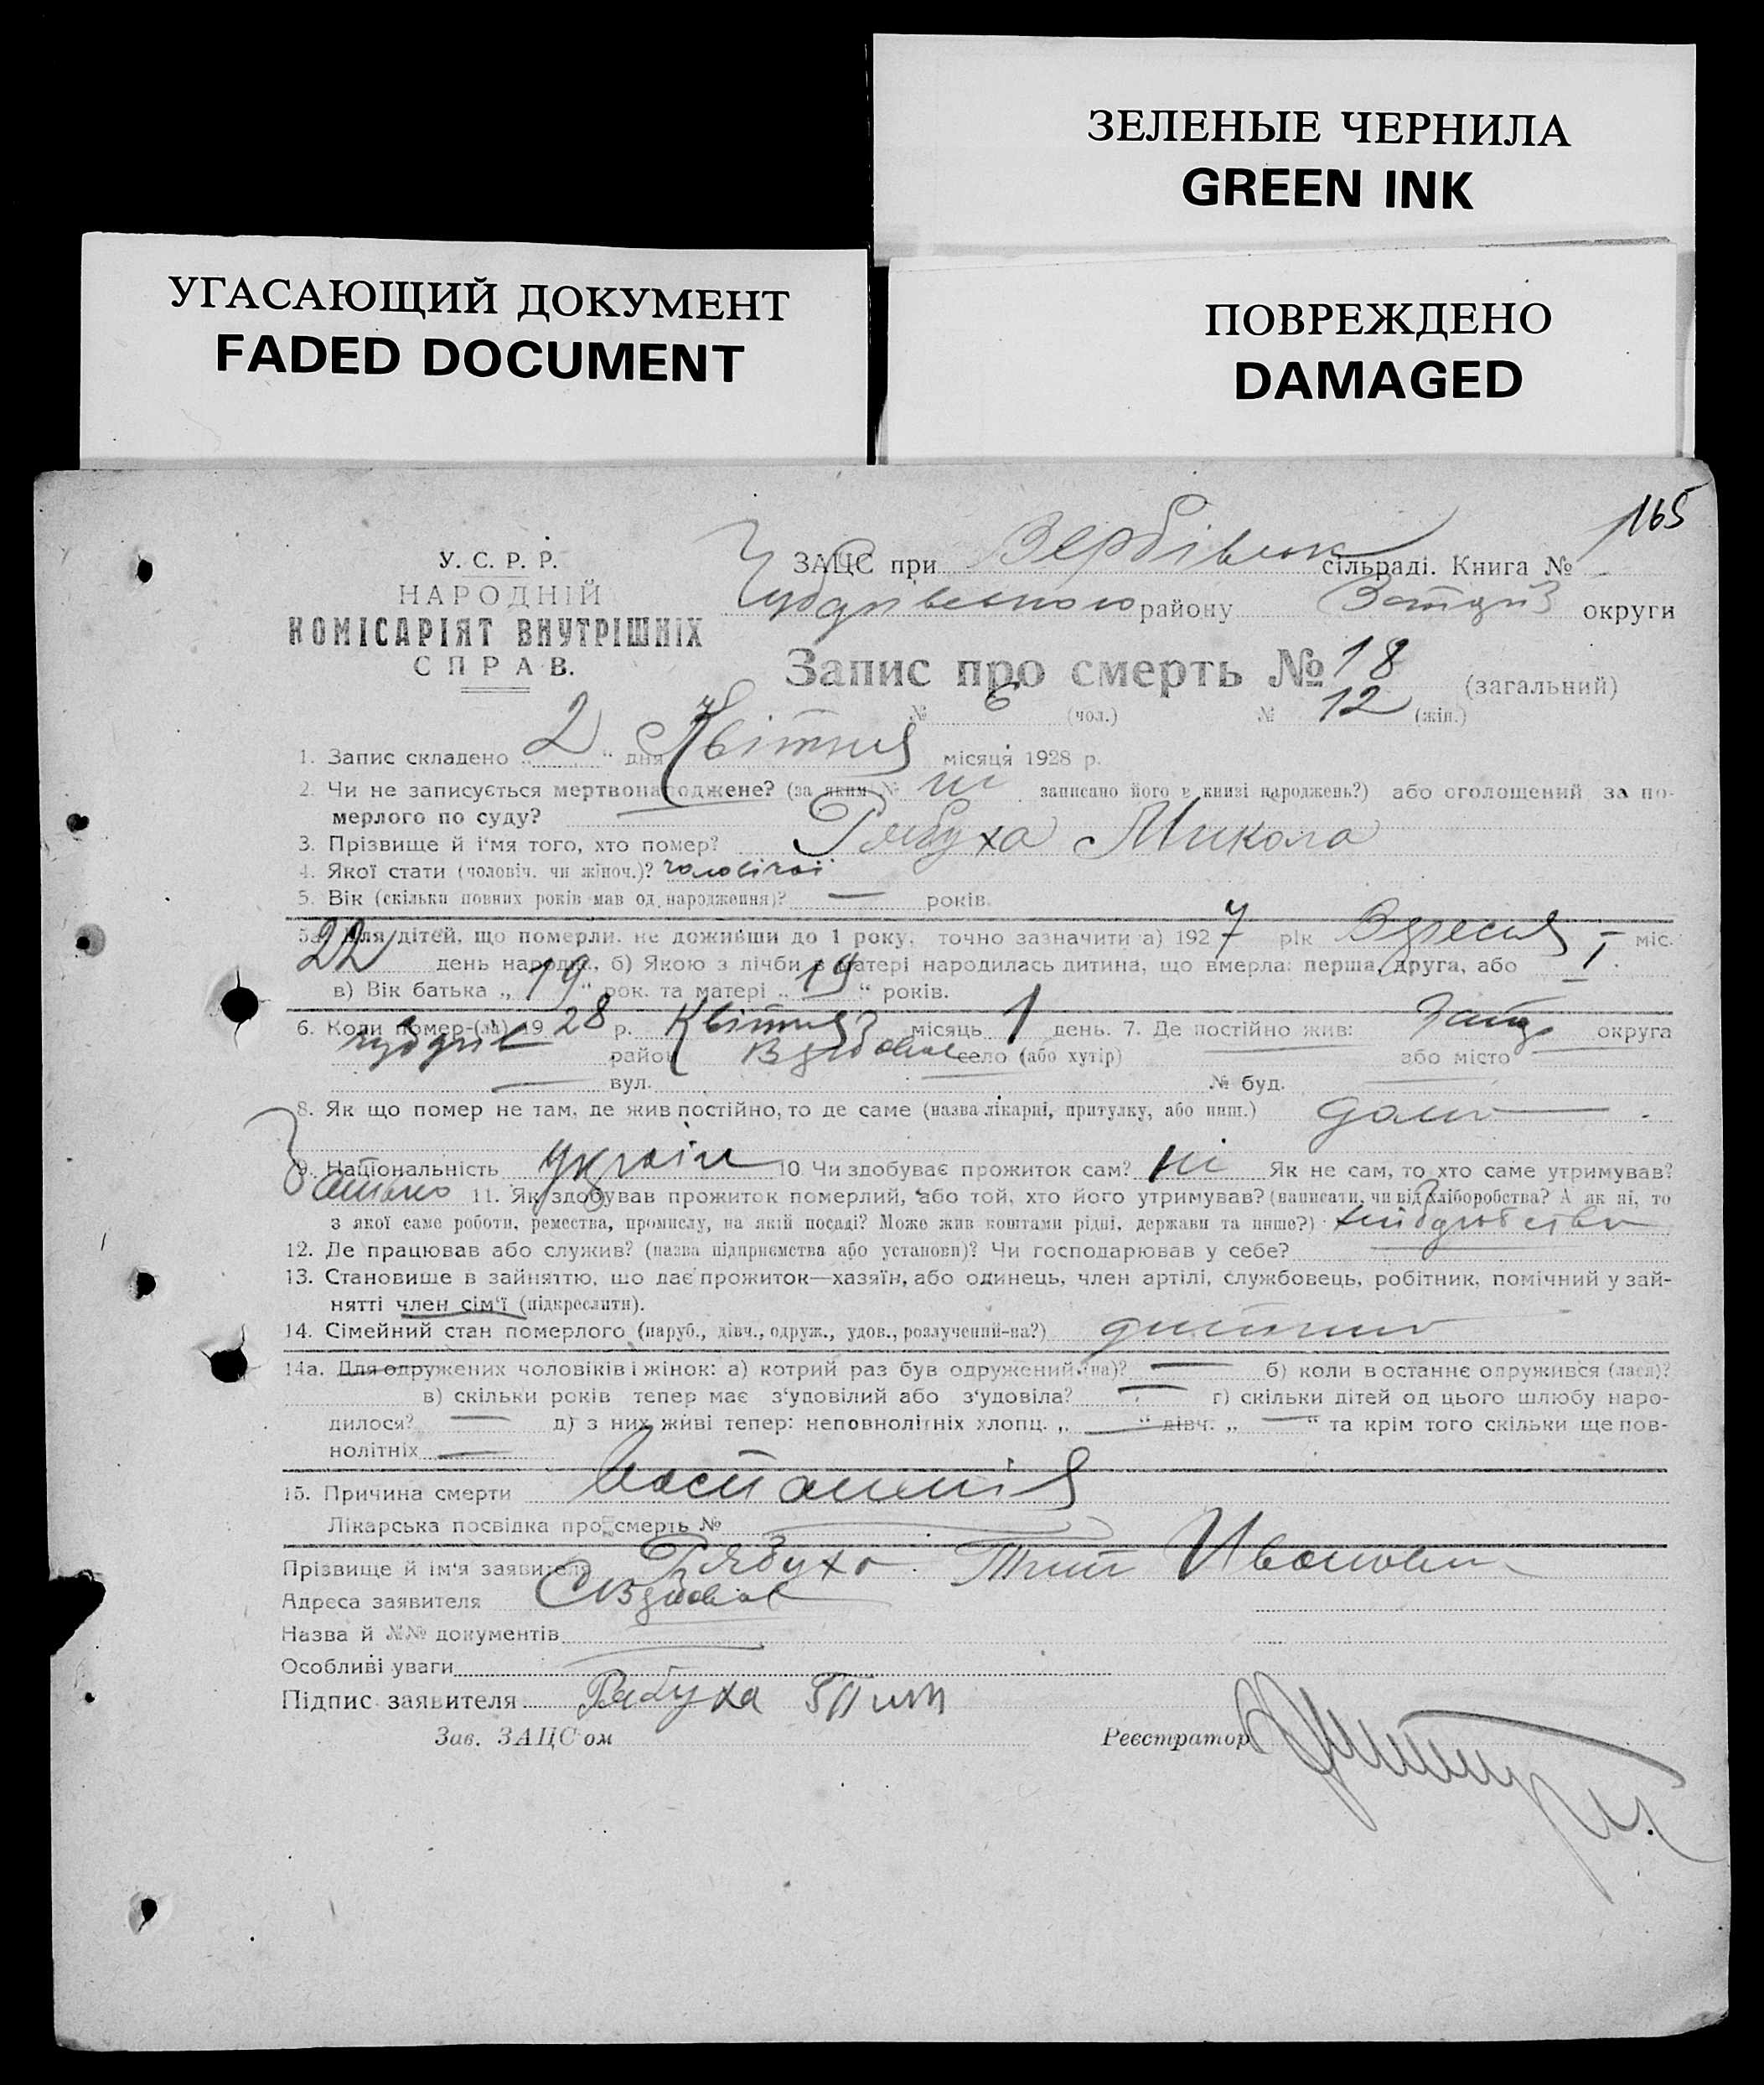 ЗЕЛЕНЫЕ ЧЕРНИЛА
GREEN INK
УГАСАЮЩИЙ ДОКУМЕНТ
FADED DOCUMENT
ПОВРЕЖДЕНО
DAMAGED
165
У. С. Р. Р.
НАРОДНІЙ
КОМІСАРІЯТ ВНУТРІШНІХ
СПРАВ.
ЗАЦС при Вербівськ сільраді. Книга №
району округи
Запис про смерть № 18 (загальний)
№ 6 (чол.) № 12 (жін.)
1. Запис складено „ 2 “ дня Квітня місяця 1928 р.
2. Чи не записується мертвонароджене? (за яким № ні записано його в книзі народжень?) або оголошений за по-
мерлого по суду?
3. Прізвище й і'мя того, хто помер? Рябуха Микола
4. Якої стати (чоловіч. чи жіноч.)? чоловічої
5. Вік (скільки повних років мав од народження)? — років.
5а. Для дітей, що померли, не доживши до 1 року, точно зазначити а) 1927 рік Вересня міс.
22 день народж., б) Якою з лічби в матері народилась дитина, що вмерла: перша, друга, або I
в) Вік батька „ 19 “ рок. та матері „ 19 “ років.
6. Коли помер-(ла) 1928 р. Квітня місяць 1 день. 7. Де постійно жив: округа
район село (або хутір) — або місто —
— вул. № буд. —
8. Як що помер не там, де жив постійно, то де саме (назва лікарні, притулку, або инш.) дома
9. Національність україн 10 Чи здобуває прожиток сам? ні Як не сам, то хто саме утримував?
батько 11. Як здобував прожиток померлий, або той, хто його утримував? (написати, чи від хліборобства? А як ні, то
з якої саме роботи, ремества, промислу, на якій посаді? Може жив коштами рідні, держави та инше?)
12. Де працював або служив? (назва підприємства або установи)? Чи господарював у себе? —
13. Становище в зайняттю, що дає прожиток—хазяїн, або одинець, член артілі, службовець, робітник, помічний у зай-
нятті член сім'ї (підкреслити).
14. Сімейний стан померлого (паруб., дівч., одруж., удов., розлучений-на?) дитина
14а. Для одружених чоловіків і жінок: а) котрий раз був одружений-(на)? — б) коли в останнє одружився (лася)?
в) скільки років тепер має з'удовілий або з'удовіла? — г) скільки дітей од цього шлюбу наро-
дилося? — д) з них живі тепер: неповнолітніх хлопц. „ — “ дівч. „ — “ та крім того скільки ще пов-
нолітніх —
15. Причина смерти
Лікарська посвідка про смерть № —
Прізвище й ім'я заявителя Рябуха Тит Иванович
Адреса заявителя
Назва й №№ документів
Особливі уваги
Підпис заявителя Рябуха Тит
Зав. ЗАЦС'ом Реєстратор